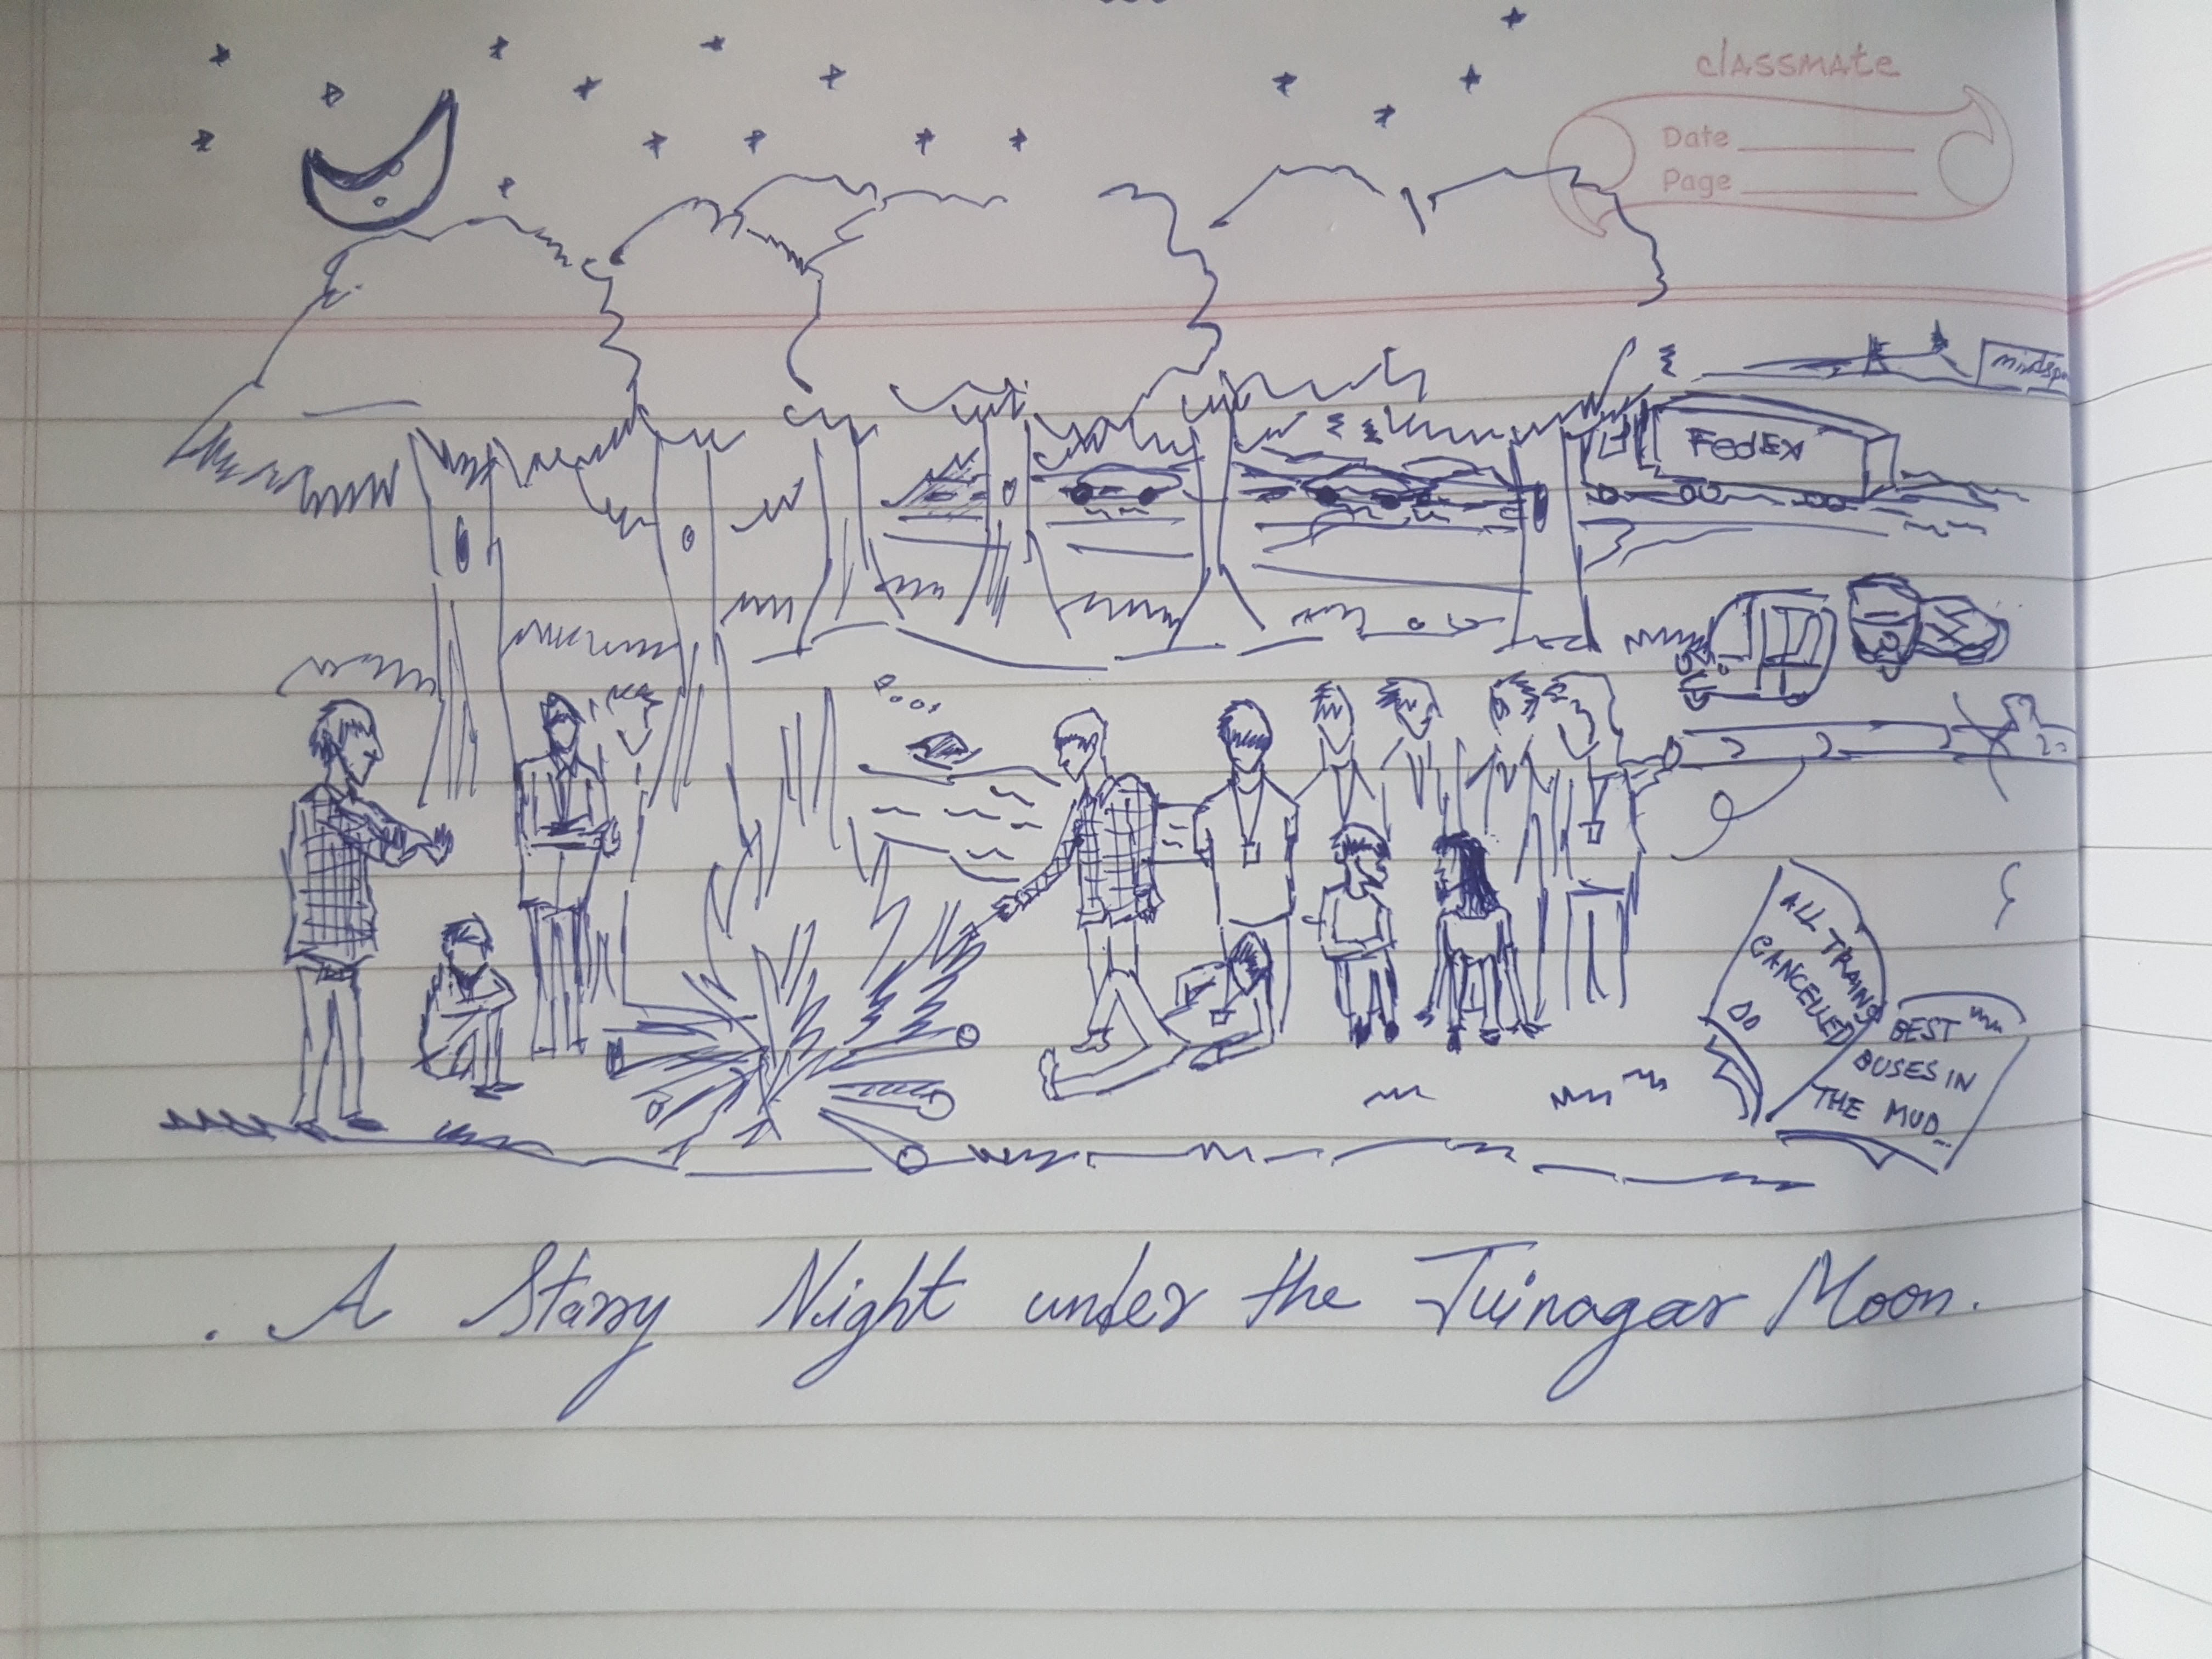 classmate
Date
Page
FedEx
ALL TRAINS
CANCELLED
BEST
BUSES IN
THE MUD...
A Starry Night under the Juinagar Moon.